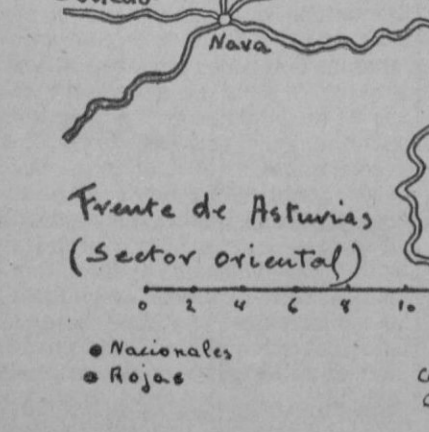 Nava
Frente de Asturias
(Sector oriental)
0 2 4 6 8 10
Nacionales
Rojas